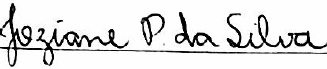 Joziane P. da Silva